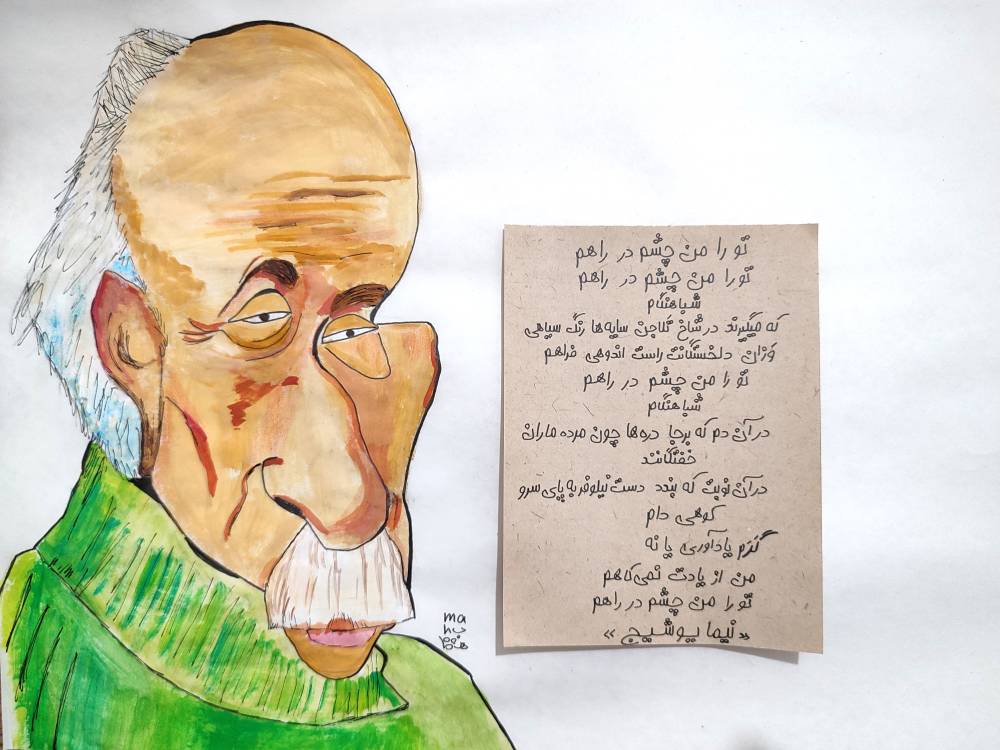 تو را من چشم در راهم
تو را من چشم در راهم
شباهنگام
که میگیرند در شاخ تلاجن سایه‌ها رنگ سیاهی
وزان دلخستگانت راست اندوهی فراهم
تو را من چشم در راهم
شباهنگام
در آن دم که برجا دره‌ها چون مرده ماران
خفتگانند
در آن نوبت که بندد دست نیلوفر به پای سرو
کوهی دام
گرم یادآوری یا نه
من از یادت نمی‌کاهم
تو را من چشم در راهم
«نیما یوشیج»
ma